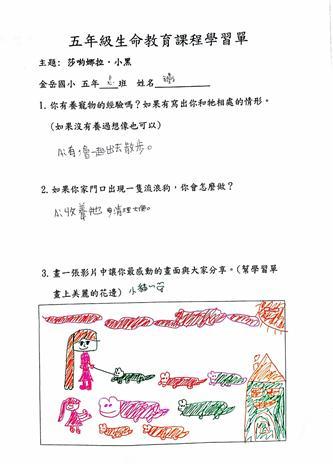 五年級生命教育課程學習單
主題: 莎喲娜拉·小黑
金岳國小 五年 班 姓名
1. 你有養寵物的經驗嗎？如果有寫出你和牠相處的情形。
(如果沒有養過想像也可以)
A:有,會一起出去散步。
2. 如果你家門口出現一隻流浪狗，你會怎麼做？
A:收養牠 清理大便。
3. 畫一張影片中讓你最感動的畫面與大家分享。(幫學習單
畫上美麗的花邊)